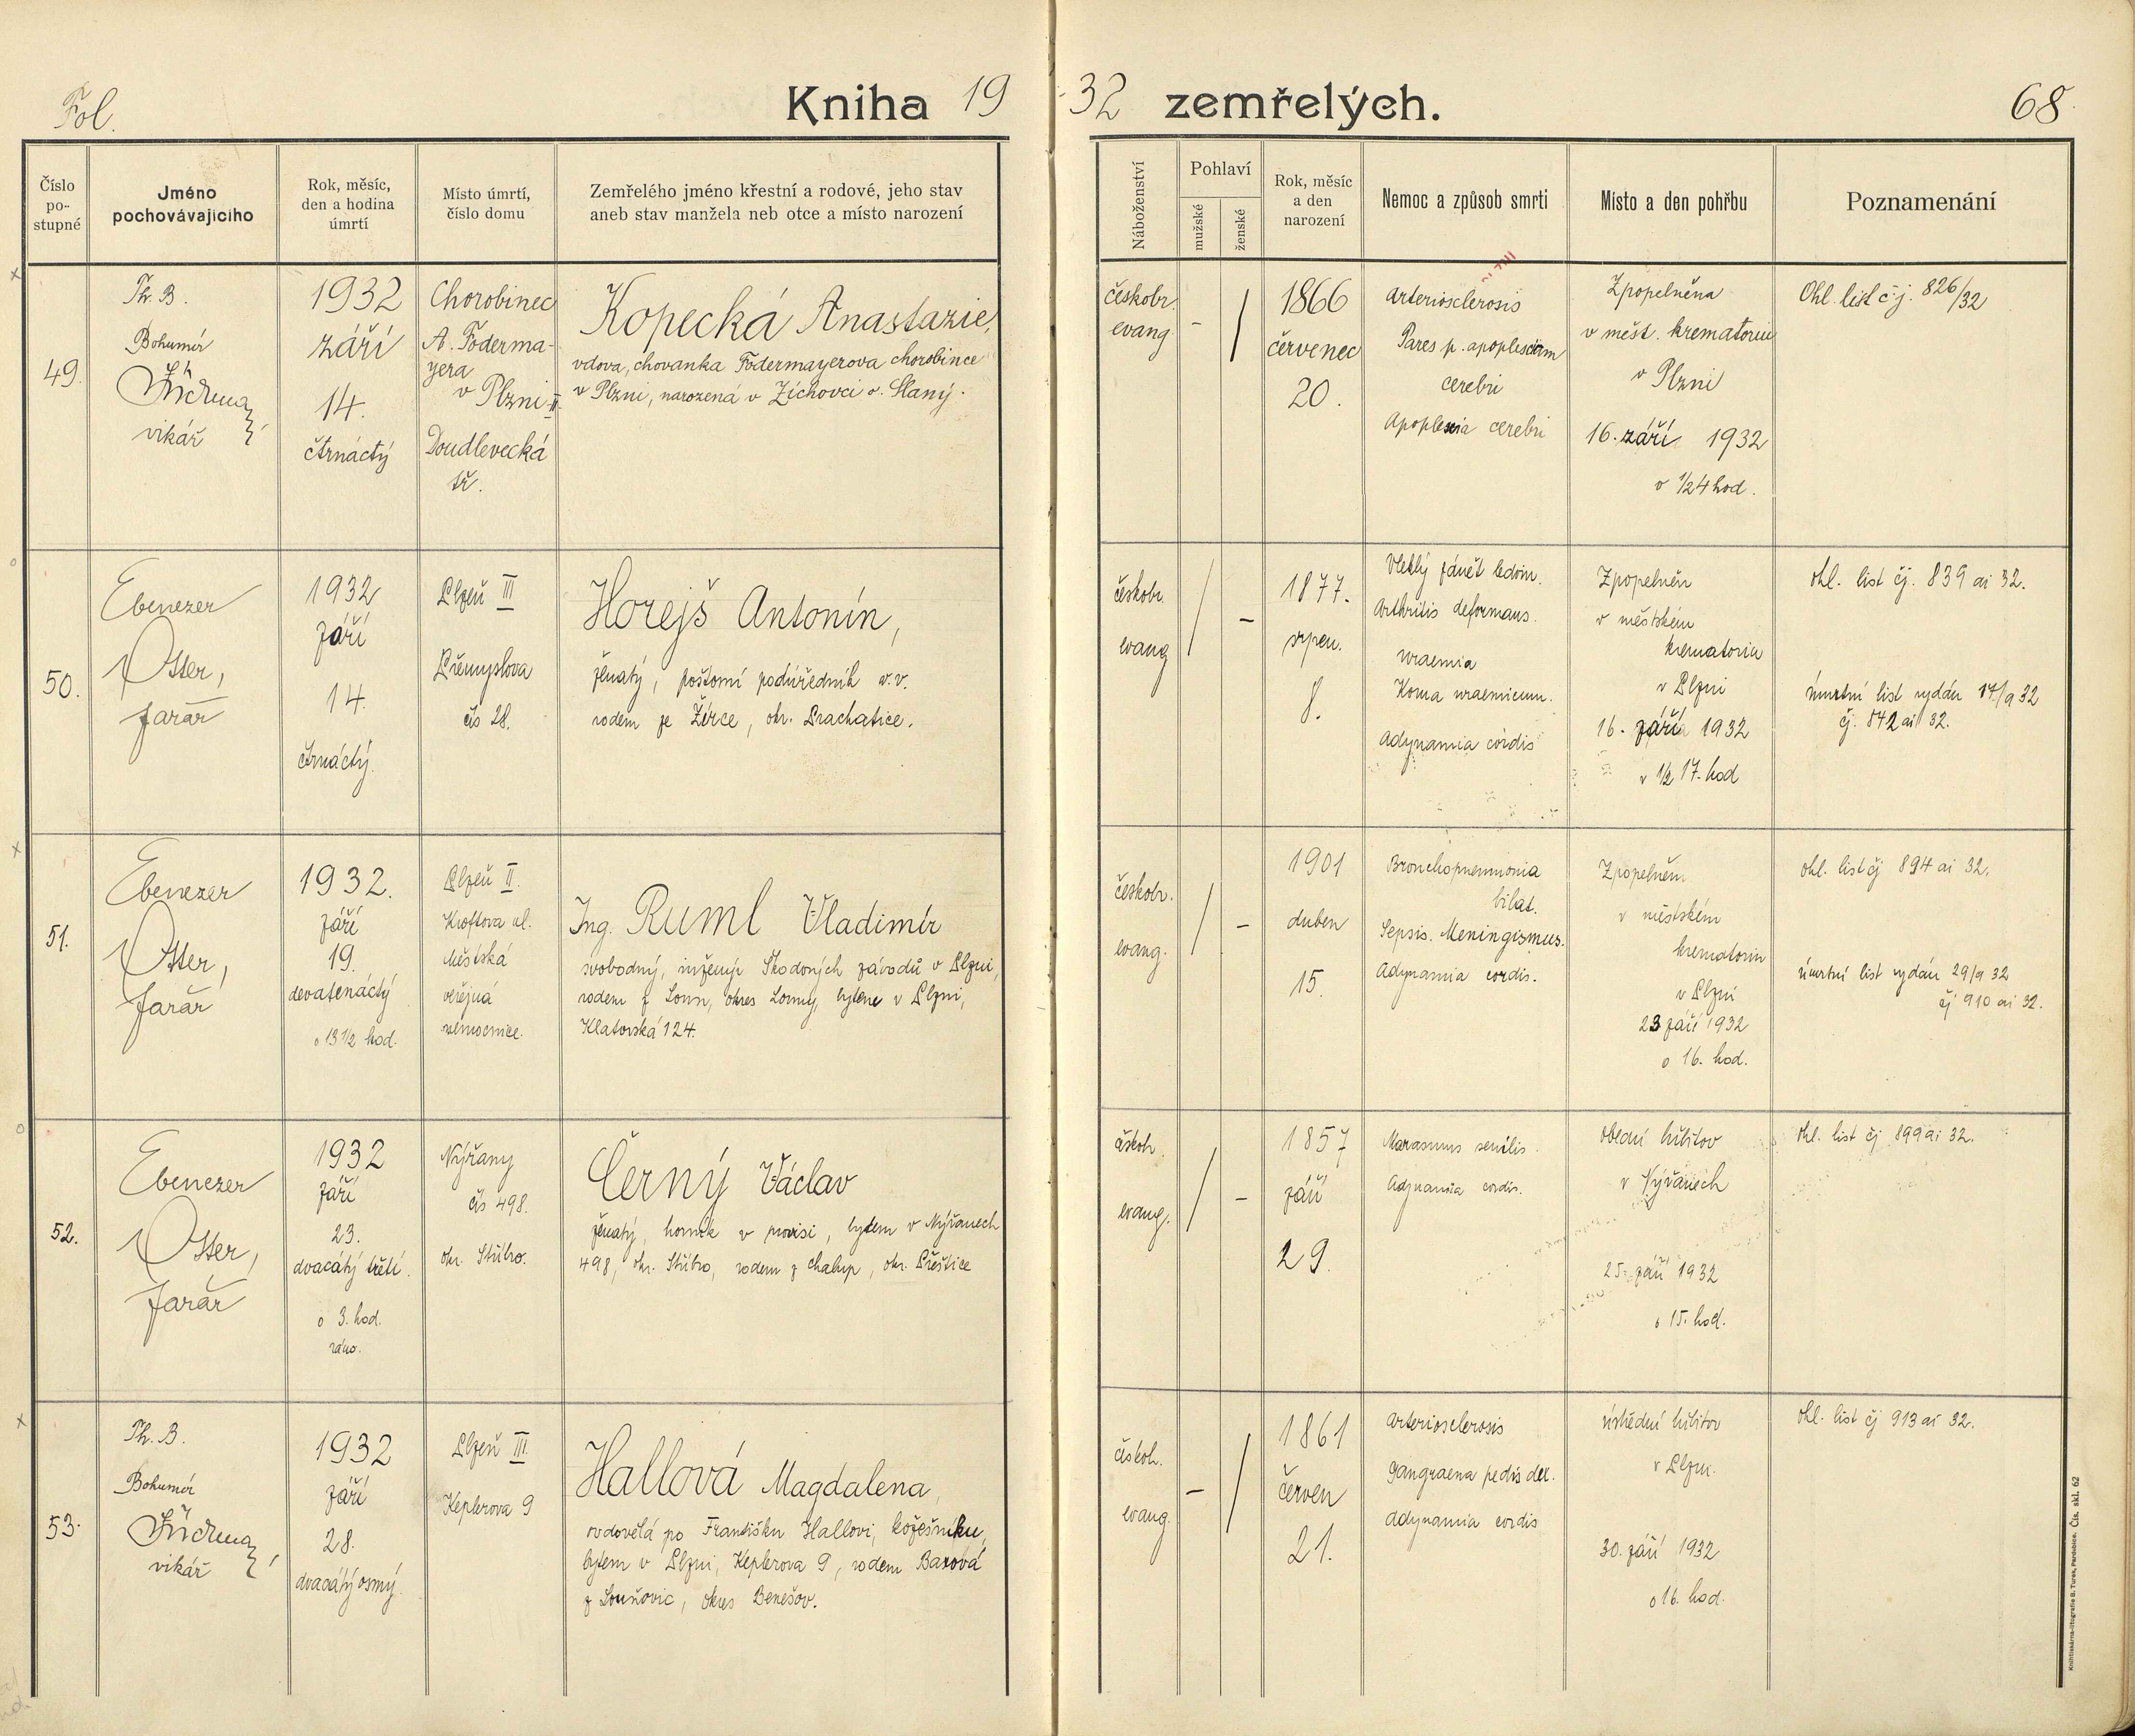 Fol.
Kniha 19
32 zemřelých.
68
Číslo po-stupné
Jméno pochovávajícího
Rok, měsíc, den a hodina úmrtí
Místo úmrtí, číslo domu
Zemřelého jméno křestní a rodové, jeho stav
aneb stav manžela neb otce a místo narození
Náboženství
Pohlaví
mužské
ženské
Rok, měsíc a den narození
Nemoc a způsob smrti
Místo a den pohřbu
Poznamenání
49.
Th. B.
Bohumír
vikář
1932
září
14.
čtrnáctý
Chorobinec
A. Foderma-
yera
v Plzni II.
Doudlevecká
tř.
Kopecká Anastazie,
vdova, chovanka Fodermayerova chorobince
v Plzni, narozená v Zichovci o. Slaný.
českobr.
evang
-
/
1866
červenec
20.
Arteriosclerosis
Pares p. apoplexiam
cerebri
Apoplexia cerebri
Zpopelněna
v měst. krematoriu
v Plzni
16. září 1932
o 1/24 hod.
Ohl. list č. j. 826/32
50.
Ebenezer
Otter,
farář
1932
září
14.
čtrnáctý.
Plzeň III
Přemyslova
čís 28.
Horejš Antonín,
ženatý, poštovní podúředník v.v.
rodem ze Žírce, okr. Prachatice.
českobr.
evang
/
-
1877.
srpen.
8.
Vleklý zánět ledvin.
Arthritis deformans.
uraemia
Koma uraemicum.
Adynamia cordis
Zpopelněn
v městském
krematoriu
v Plzni
16. září 1932
v 1/2 17. hod
ohl. list čj. 839 ai 32.
úmrtní list vydán 17/9 32
čj. 842 ai 32.
51.
Ebenezer
Otter,
farář
1932.
září
19.
devatenáctý
o 13 1/2 hod.
Plzeň II.
Kroftova ul.
Městská
veřejná
nemocnice.
Ing. Ruml Vladimír
svobodný, inženýr Škodových závodů v Plzni,
rodem z Loun, okres Louny, bytem v Plzni,
Klatovská 124.
českobr.
evang.
/
-
1901
duben
15.
Bronchopneumonia
bilat.
Sepsis. Meningismus.
Adynamia cordis.
Zpopelněn.
v městském
krematoriu
v Plzni
23 září 1932
o 16. hod.
ohl. list čj 894 ai 32.
úmrtní list vydán 29/9 32
čj 910 ai 32.
52.
Ebenezer
Otter,
farář
1932
září
23.
dvacátý třetí.
o 3. hod.
ráno.
Nýřany
čís 498.
okr. Stříbro.
Černý Václav
ženatý, horník v provisi, bytem v Nýřanech
498, okr. Stříbro, rodem z Chalup, okr. Přeštice
českob.
evang.
/
-
1857
září
29.
Marasmus senilis.
Adynamia cordis.
Obecní hřbitov
v Nýřanech
25. září 1932
o 15. hod.
ohl. list čj 899 ai 32.
53.
Th. B.
Bohumír
vikář
1932
září
28.
dvacátý osmý.
Plzeň III.
Keplerova 9
Hallová Magdalena,
ovdovělá po Františku Hallovi, kožešníku,
bytem v Plzni, Keplerova 9, rodem Baxová
z Louňovic, okres Benešov.
českob.
evang.
-
/
1861
červen
21.
Arteriosclerosis
Gangraena pedis dex.
Adynamia cordis
Ústřední hřbitov
v Plzni.
30. září 1932
o 16. hod.
Ohl. list čj 913 ai 32.
Knihtiskárna-litografie B. Turek, Pardubice. Čís. skl. 62